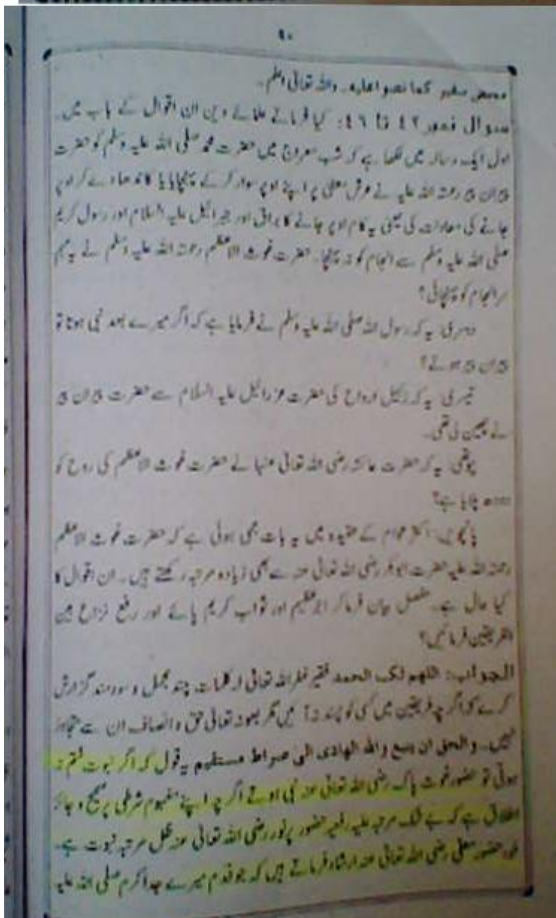 ۹۰
محض سفیر کما نصوا علیہ۔ واللہ تعالیٰ اعلم۔
سوال نمبر ٤٢ تا ٤٦: کیا فرماتے علمائے دین ان اقوال کے باب میں۔
اول ایک رسالہ میں لکھا ہے کہ شب معراج میں حضرت محمد صلی اللہ علیہ وسلم کو حضرت
پیران پیر رحمۃ اللہ علیہ نے عرش معلی پر اپنے اوپر سوار کرکے پہنچایا یا کاندھا دے کر اوپر
جانے کی معاونت کی یعنی یہ کام اوپر جانے کا براق اور جبرائیل علیہ السلام اور رسول کریم
صلی اللہ علیہ وسلم سے انجام کو نہ پہنچا۔ حضرت غوث الاعظم رحمۃ اللہ علیہ نے یہ مہم
سرانجام کو پہنچائی؟
دوسری: یہ کہ رسول اللہ صلی اللہ علیہ وسلم نے فرمایا ہے کہ اگر میرے بعد نبی ہوتا تو
پیران پیر ہوتے؟
تیسری: یہ کہ زنبیل ارواح کی حضرت عزرائیل علیہ السلام سے حضرت پیران پیر
نے چھین لی تھی۔
چوتھی: یہ کہ حضرت عائشہ رضی اللہ تعالیٰ عنہا نے حضرت غوث الاعظم کی روح کو
پلایا ہے؟
پانچویں: اکثر عوام کے عقیدہ میں یہ بات جمی ہوئی ہے کہ حضرت غوث الاعظم
رحمۃ اللہ علیہ حضرت ابوبکر رضی اللہ تعالیٰ عنہ سے بھی زیادہ مرتبہ رکھتے ہیں۔ ان اقوال کا
کیا حال ہے۔ مفصل بیان فرماکر اجرعظیم اور ثواب کریم پائے اور رفع نزاع بین
الفریقین فرمائیں؟
الجواب: اللهم لک الحمد فقیر غفراللہ تعالیٰ لہ کلمات چند مجمل و سودمند گزارش
کرے کہ اگرچہ فریقین میں کسی کو پسند نہ آئیں مگر بعونہ تعالیٰ حق و انصاف ان سے متجاوز
نہیں۔ والحق ان یتبع واللہ الهادی الی صراط مستقیم یہ قول کہ اگر نبوت ختم نہ
ہوتی تو حضور غوث پاک رضی اللہ تعالیٰ عنہ نبی ہوتے اگرچہ اپنے مفہوم شرطی پر صحیح و جائز
اطلاق ہے کہ بے شک مرتبہ علیہ رفیعہ حضور پرنور رضی اللہ تعالیٰ عنہ ظل مرتبہ نبوت ہے۔
حضور معلی رضی اللہ تعالیٰ عنہ ارشاد فرماتے ہیں کہ جو قدم میرے جد اکرم صلی اللہ علیہ